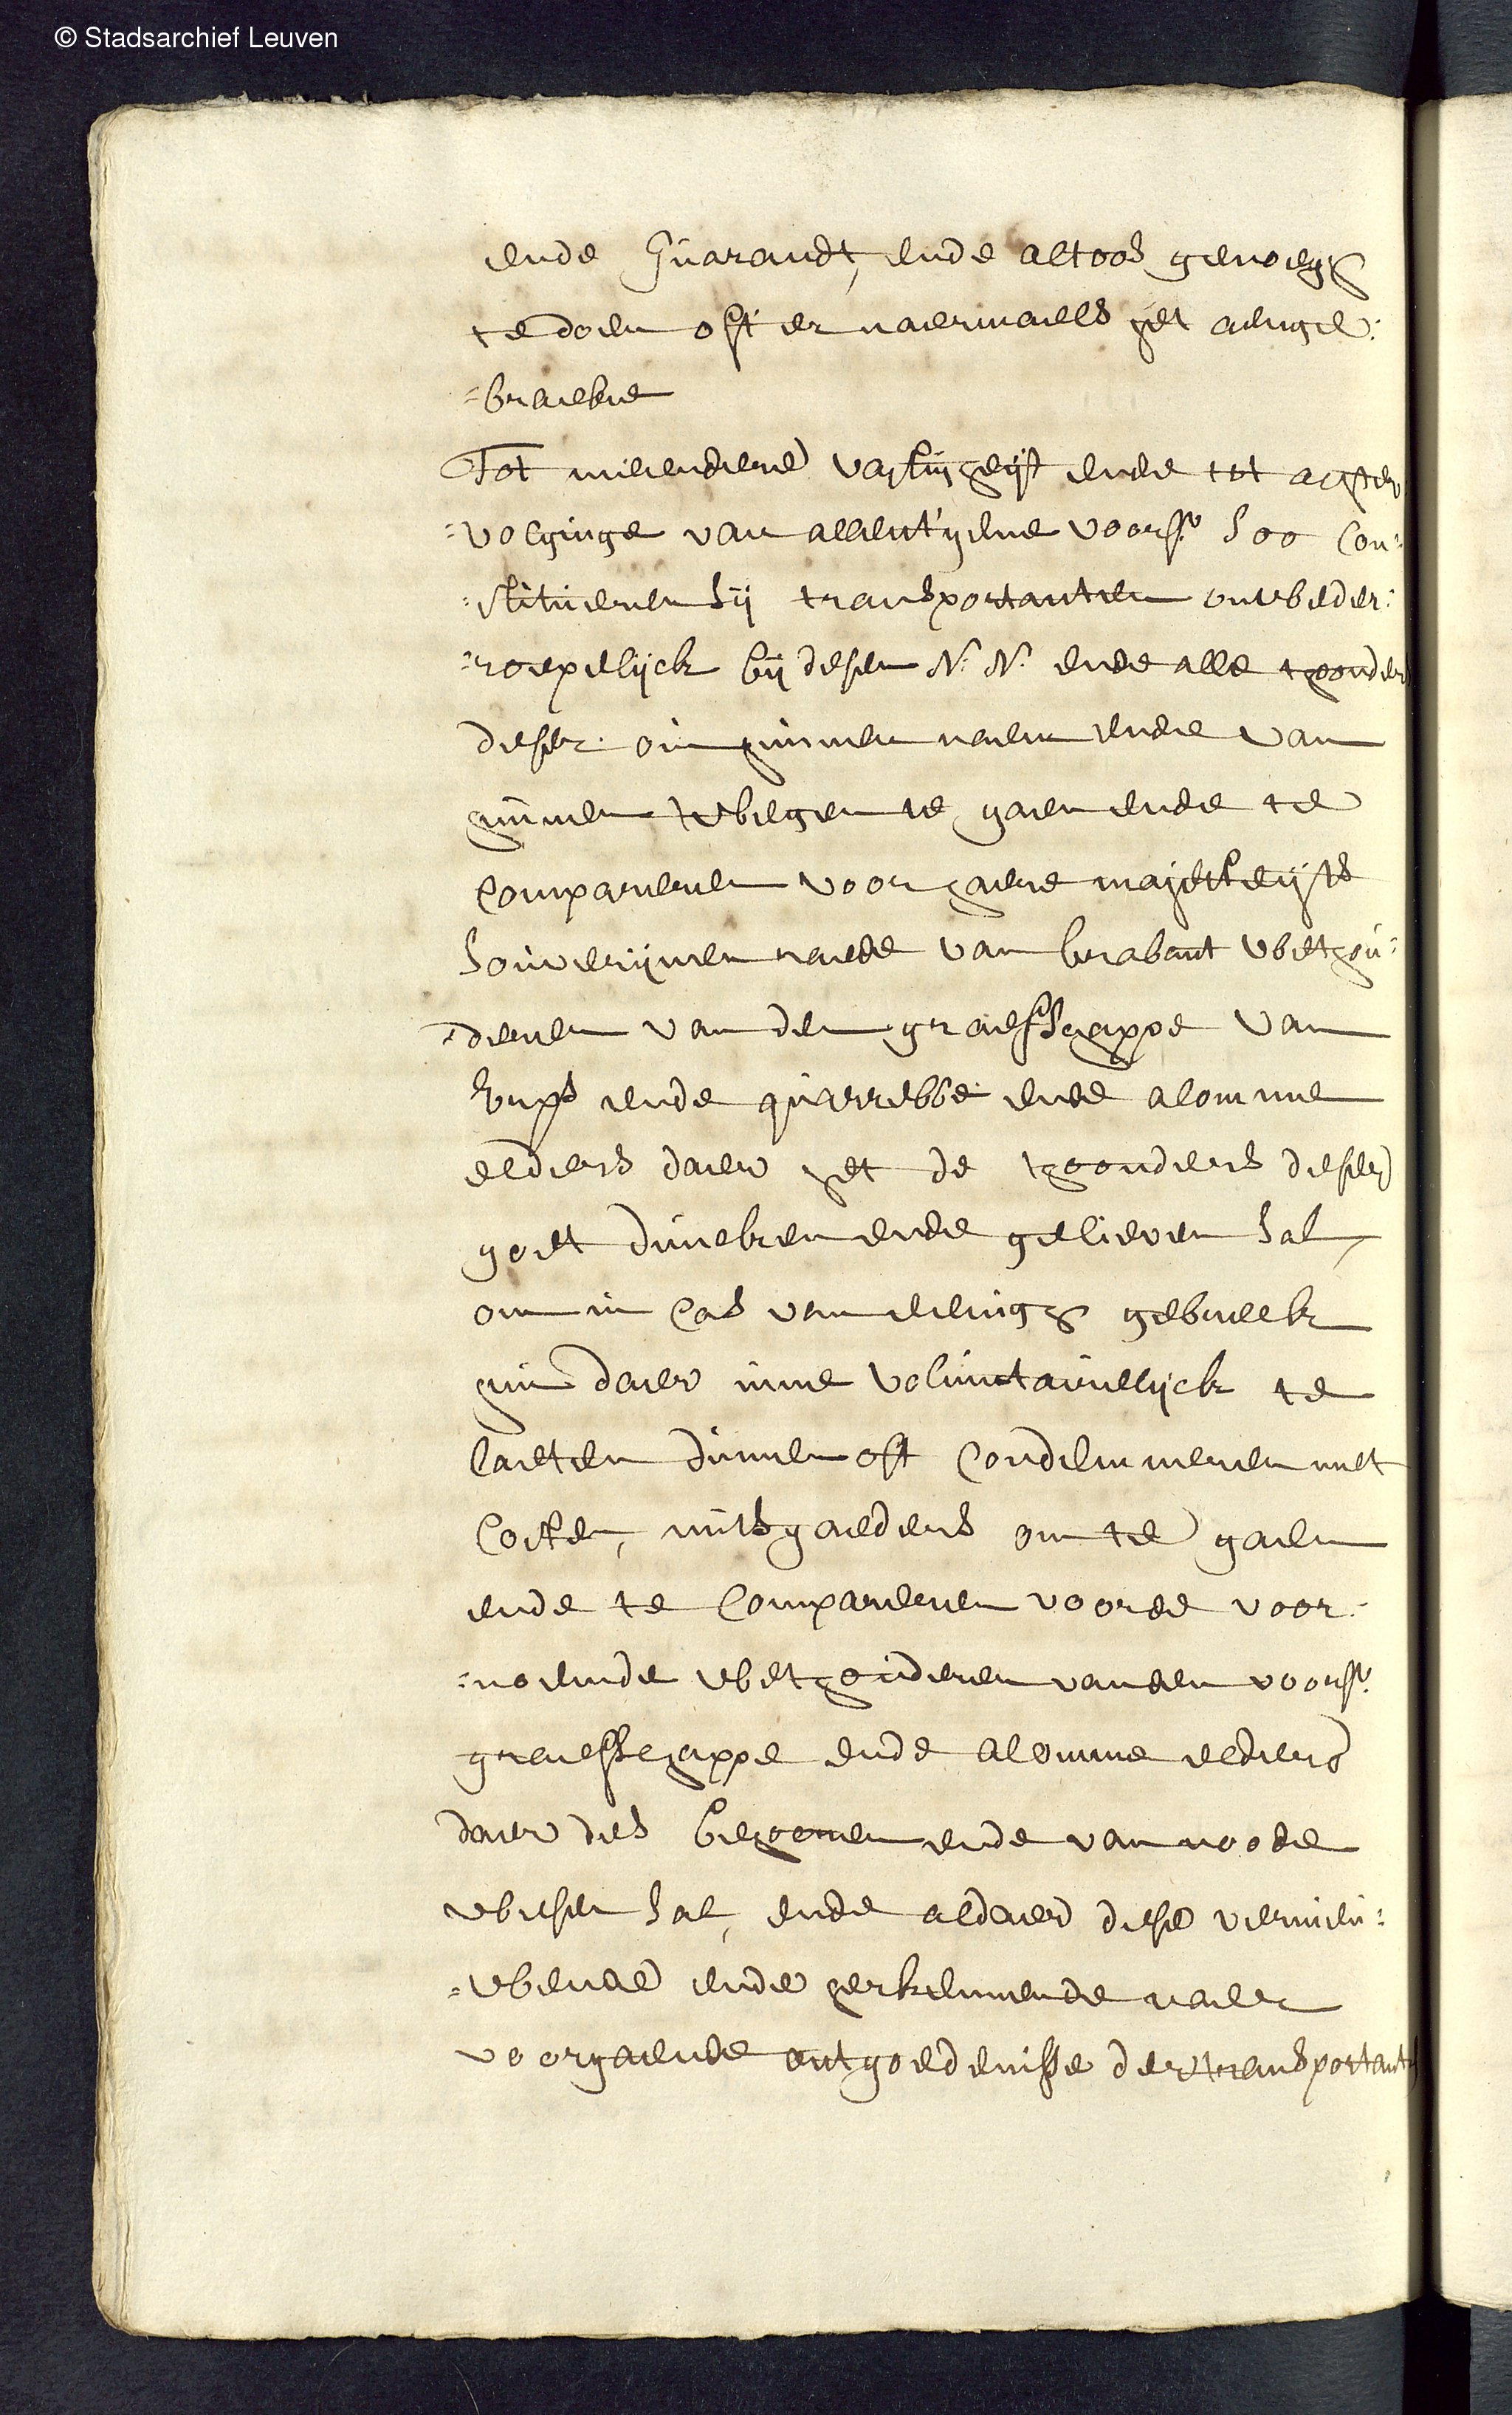 © Stadsarchief Leuven
ende Guarandt, ende altoos genoegh
te doen oft er naermaels iet aenge:
=braecke
Tot meerdere vasticheijt ende tot achter
=volginge van allent'gene voorsr soo Con:
=stitueren sij transportanten onwbeder:
=roepelijck bij desen N: N: ende alle thoonders
deser om hunnen naem ende van
hunnen wegen te gaen ende te
Compareren voor haere majesteijts
souverijnen raede van brabant wethou:
=deren van den graefschappe van
Erps ende querrebbe ende alomme
elders daer het de thoonders deser
goet duncken ende gelieven sal,
om in Cas van eenigh gebreck
hun daer inne voluntairelijck te
laeten doemen oft Condemneren met
Costen, mitsgaeders om te gaen
ende te Compareren voorde voor:
=noemde wethouderen vanden voorsr
graefschappe ende alomme elders
daer des behooren ende van noode
wesen sal, ende aldaer dese vernieu:
=wende ende herkennende naer
voorgaende ontgoedenisse der transportanten